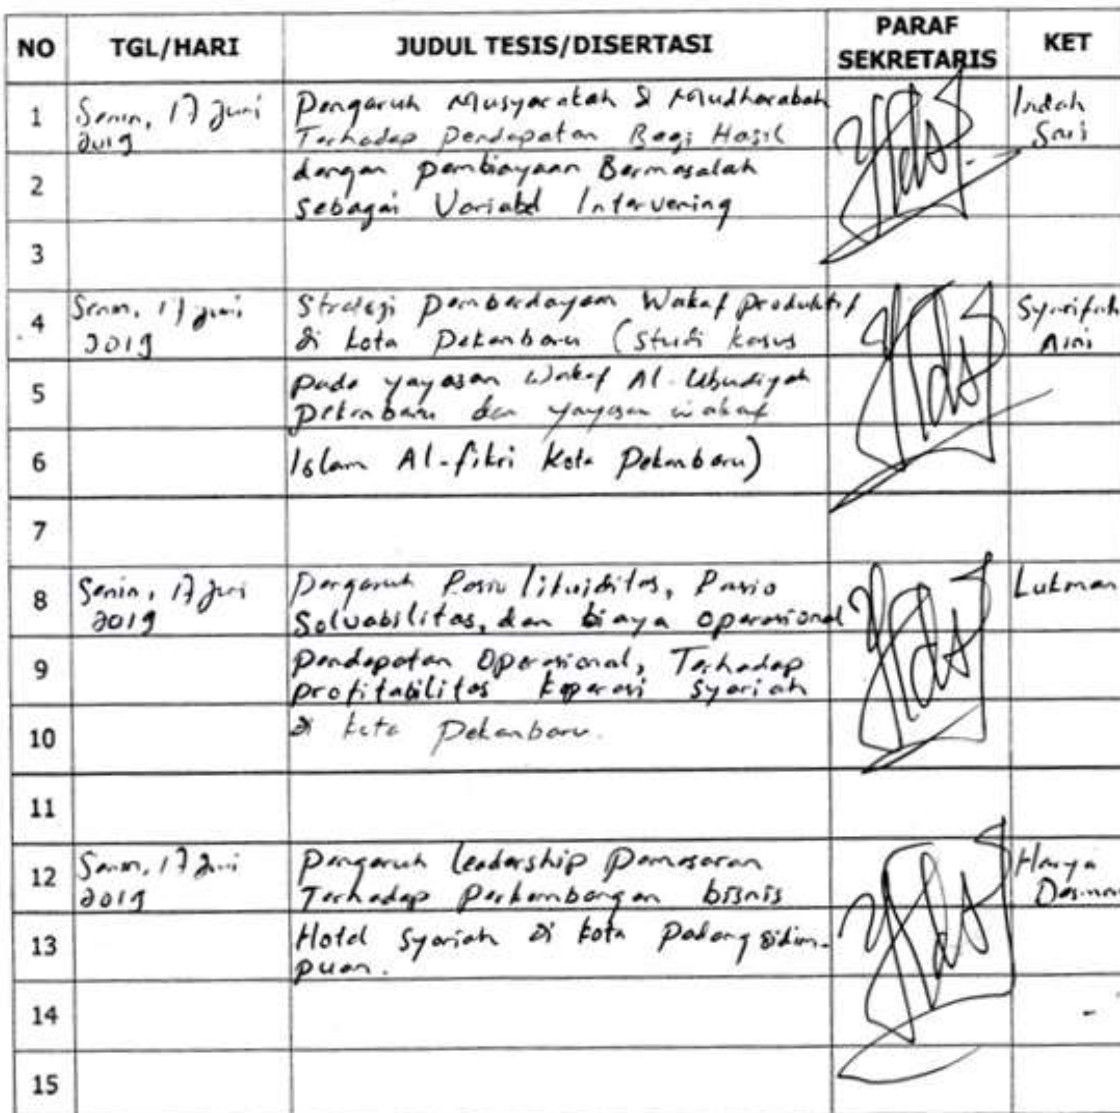 NO TGL/HARI JUDUL TESIS/DISERTASI PARAF SEKRETARIS KET
1 Senin, 17 Juni 2019 Pengaruh Musyarakah & Mudharabah Indah Sari
Terhadap Pendapatan Bagi Hasil
2 dengan pembiayaan Bermasalah
sebagai Variabel Intervening
3
4 Senin, 17 Juni 2019 Strategi Pemberdayaan Wakaf produktif Syarifah Aini
di kota Pekanbaru (Studi kasus
5 pada yayasan Wakaf Al-Ubudiyah
Pekanbaru dan yayasan wakaf
6 Islam Al-fikri Kota Pekanbaru)
7
8 Senin, 17 Juni 2019 Pengaruh Rasio likuiditas, Rasio Lukman
Solvabilitas, dan biaya operasional
9 pendapatan Operasional, Terhadap
profitabilitas koperasi syariah
10 di kota Pekanbaru.
11
12 Senin, 17 Juni 2019 Pengaruh leadership Pemasaran Harya
Terhadap Perkembangan bisnis
13 Hotel Syariah di kota Padangsidim-
puan.
14 -
15